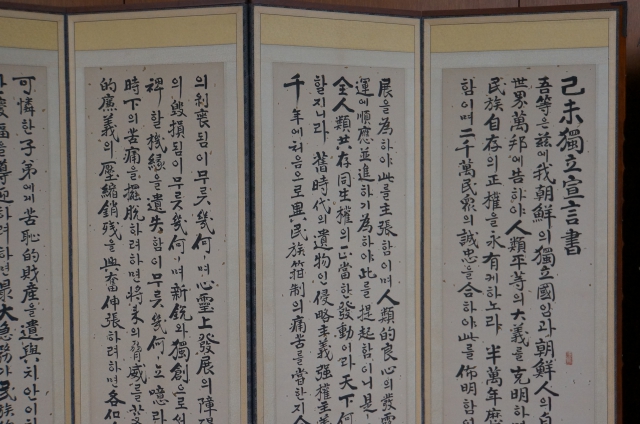 己未獨立宣言書
吾等은玆에我朝鮮의獨立國임과朝鮮人의自
世界萬邦에告하야人類平等의大義를克明하며
民族自存의正權을永有케하노라 半萬年歷
함이며二千萬民衆의誠忠을合하야此를佈明함
展을爲하야此를主張함이며人類的良心의發露
運에順應並進하기爲하야此를提起함이니是
全人類共存同生權의正當한發動이라天下何
할지니라 舊時代의遺物인侵略主義强權主義
千年에처음으로異民族箝制의痛苦를嘗한지
의剝喪됨이무릇幾何,며心靈上發展의障礙
의毁損됨이무릇幾何,며新銳와獨創으로써
裨할機緣을遺失함이무릇幾何,뇨噫라
時下의苦痛을擺脫하려하면將來의脅威를芟
的廉義의壓縮銷殘을興奮伸張하려하면各個
可憐한子弟에게苦恥的財産을遺與치안이
慶福을導迎하려하면最大急務가民族